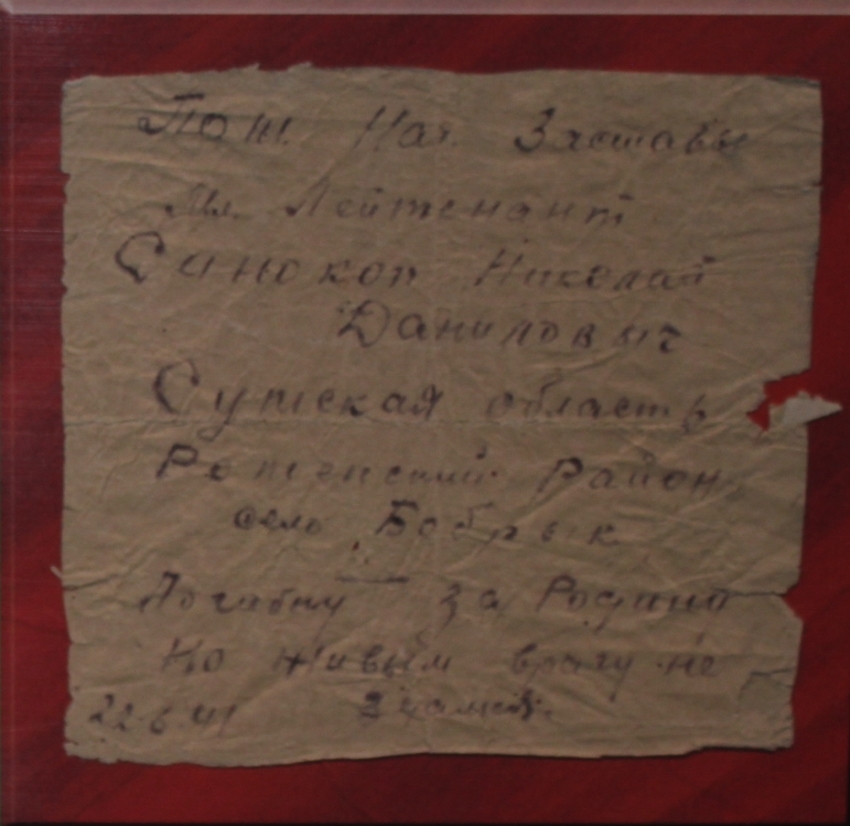 Пом. Нач. Заставы
Мл. Лейтенант
Синокоп Николай
Данилович
Сумская область
Роменский район
село Бобрык
Погибну за Родину
Но живым врагу не
22 6 41